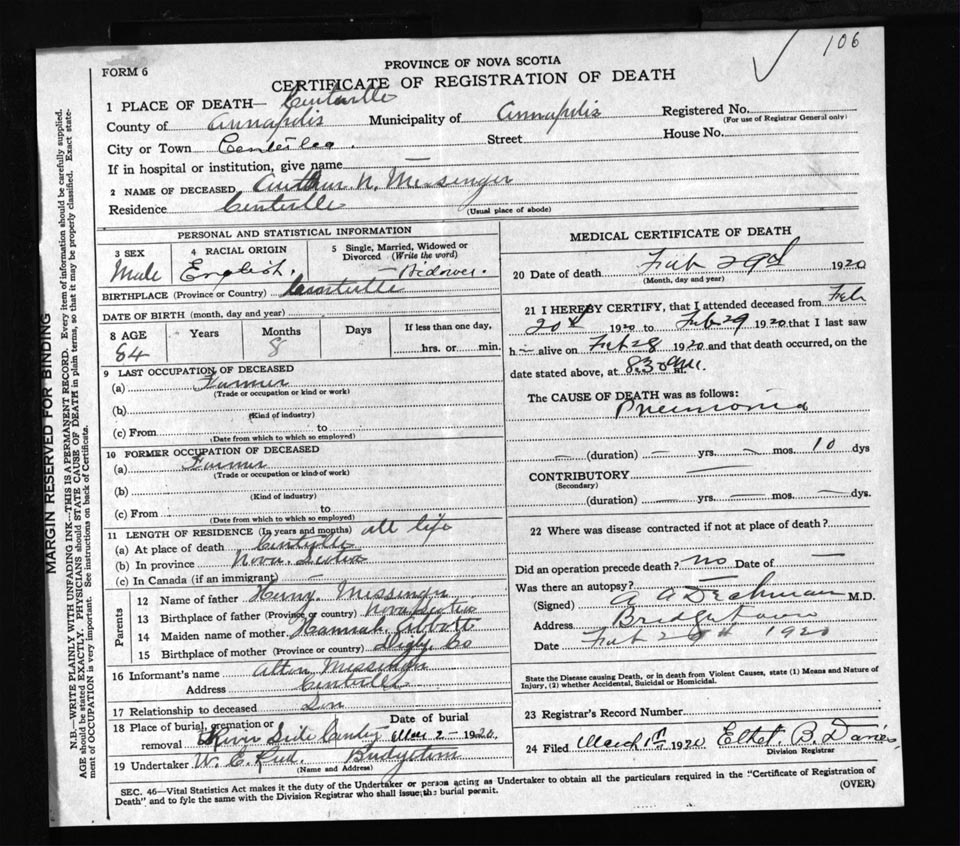 106
PROVINCE OF NOVA SCOTIA
FORM 6
CERTIFICATE OF REGISTRATION OF DEATH
1 PLACE OF DEATH— Centerville
County of Annapolis Municipality of Annapolis Registered No.
(For use of Registrar General only)
City or Town Street House No.
If in hospital or institution, give name —
2 NAME OF DECEASED Arthur N. Messinger
Residence Centerville
(Usual place of abode)
PERSONAL AND STATISTICAL INFORMATION
3 SEX 4 RACIAL ORIGIN 5 Single, Married, Widowed or Divorced (Write the word)
Male English. Widower.
BIRTHPLACE (Province or Country)
DATE OF BIRTH (month, day and year)
8 AGE Years Months Days If less than one day,
84 8 hrs. or min.
9 LAST OCCUPATION OF DECEASED
(a) Farmer
(Trade or occupation or kind or work)
(b)
(Kind of industry)
(c) From to
(Date from which to which so employed)
10 FORMER OCCUPATION OF DECEASED
(a) Farmer
(Trade or occupation or kind of work)
(b)
(Kind of industry)
(c) From to
(Date from which to which so employed)
11 LENGTH OF RESIDENCE (In years and months) all life
(a) At place of death Centerville
(b) In province Nova Scotia
(c) In Canada (if an immigrant) —
Parents
12 Name of father Henry Messinger
13 Birthplace of father (Province or country) Nova Scotia
14 Maiden name of mother Hannah
15 Birthplace of mother (Province or country) Digby Co
16 Informant's name Alton Messinger
Address Centerville
17 Relationship to deceased Son
18 Place of burial, cremation or removal River Side Date of burial Mar 2 – 1920.
19 Undertaker W. C. Bridgetown
(Name and Address)
MEDICAL CERTIFICATE OF DEATH
20 Date of death Feb 29 1920
(Month, day and year)
21 I HEREBY CERTIFY, that I attended deceased from Feb
20th 1920 to Feb 29 1920 that I last saw
h — alive on Feb 28 1920 and that death occurred, on the
date stated above, at 8.30 a.m.
The CAUSE OF DEATH was as follows:
Pneumonia
(duration) — yrs. — mos. 10 dys
CONTRIBUTORY —
(Secondary)
(duration) — yrs. — mos. — dys.
22 Where was disease contracted if not at place of death?
Did an operation precede death? no Date of —
Was there an autopsy? —
(Signed) A A Dechman M.D.
Address Bridgetown
Date Feb 1920
State the Disease causing Death, or in death from Violent Causes, state (1) Means and Nature of
Injury, (2) whether Accidental, Suicidal or Homicidal.
23 Registrar's Record Number
24 Filed March 1st 1920 Ethel B. Daniels
Division Registrar
SEC. 46—Vital Statistics Act makes it the duty of the Undertaker or person acting as Undertaker to obtain all the particulars required in the "Certificate of Registration of
Death" and to fyle the same with the Division Registrar who shall issue the burial permit.
(OVER)
MARGIN RESERVED FOR BINDING
N.B.—WRITE PLAINLY WITH UNFADING INK—THIS IS A PERMANENT RECORD. Every item of information should be carefully supplied.
AGE should be stated EXACTLY. PHYSICIANS should STATE CAUSE OF DEATH in plain terms, so that it may be properly classified. Exact state-
ment of OCCUPATION is very important. See instructions on back of Certificate.